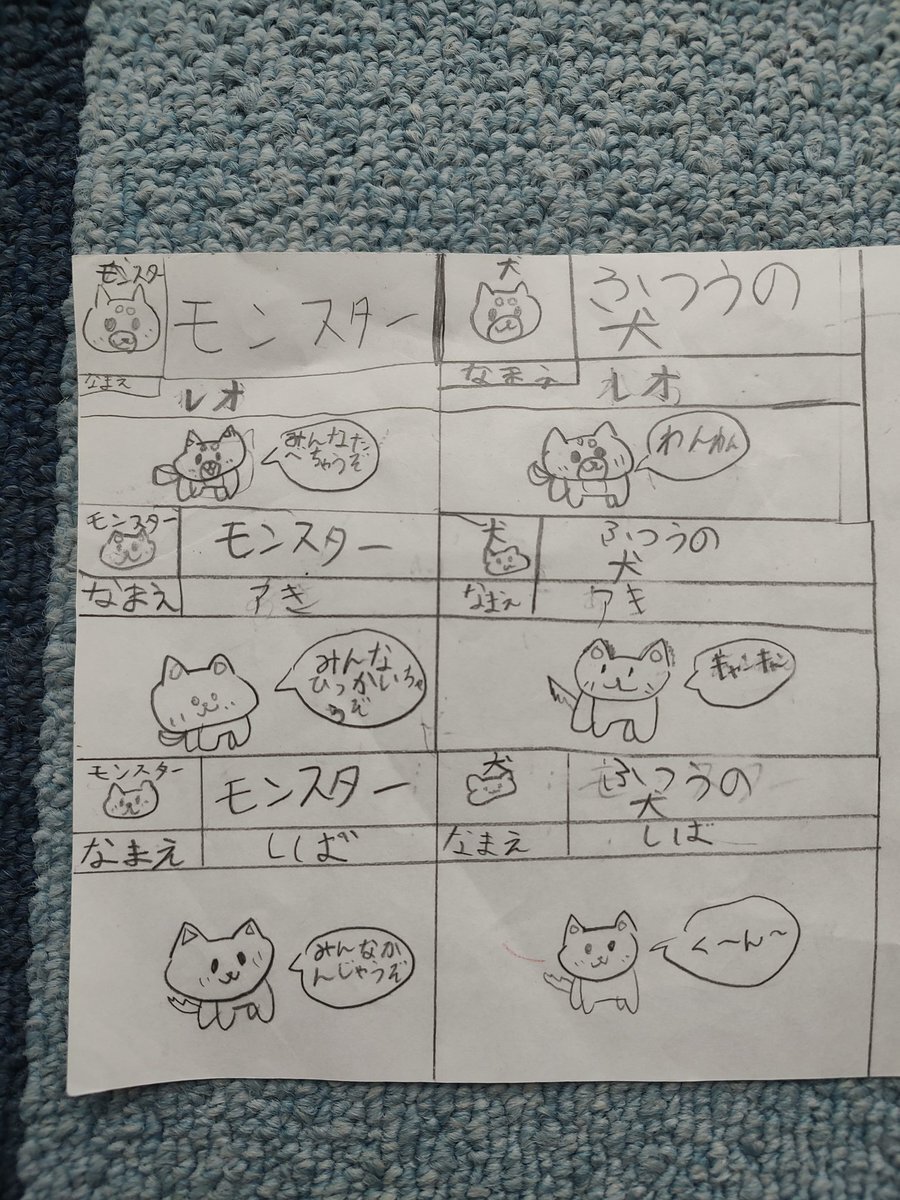 モンスター
モンスター
なまえ
ルオ
みんなた
べちゃうぞ
犬
ふつうの
犬
なまえ
ルオ
わんわん
モンスター
モンスター
なまえ
アき
みんな
ひっかいちゃ
うぞ
犬
ふつうの
犬
なまえ
アキ
キャンキャン
モンスター
モンスター
なまえ
しば
みんなか
んじゃうぞ
犬
ふつうの
犬
なまえ
しば
く〜ん〜